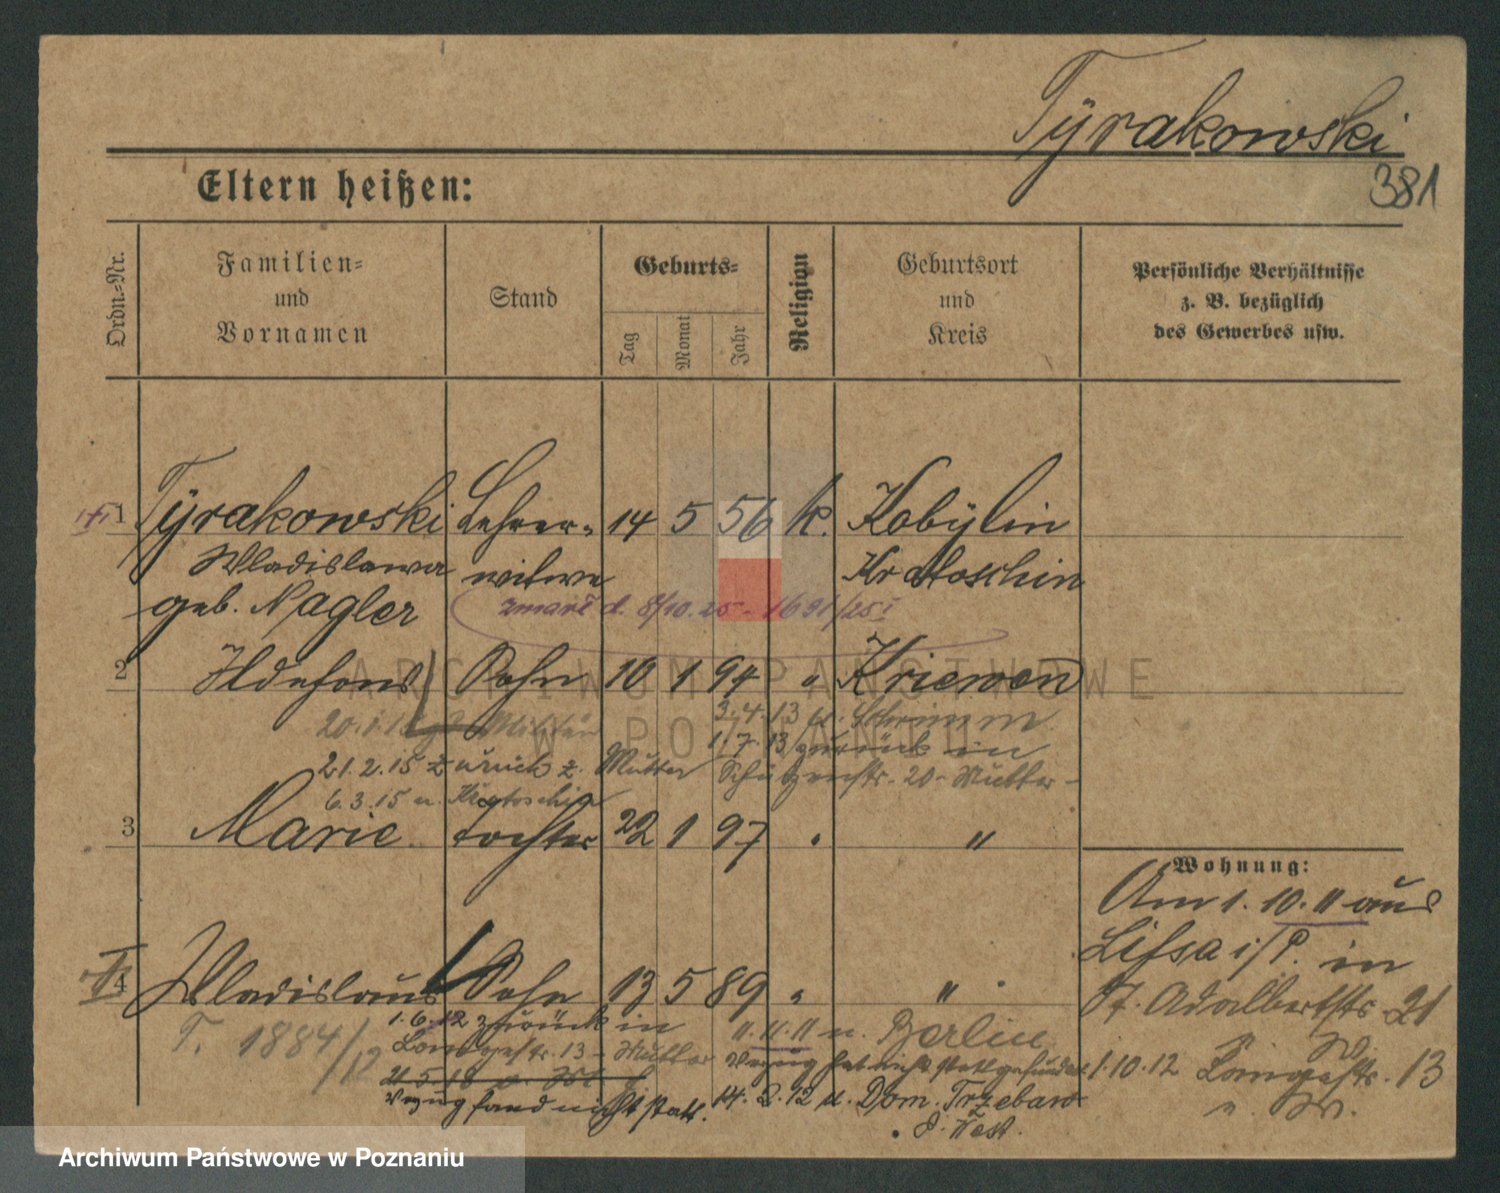 Tyrakowski
381
Eltern heißen:
Ordn.-Nr.
Familien- und Vornamen
Stand
Geburts-
Tag
Monat
Jahr
Religion
Geburtsort und Kreis
Persönliche Verhältnisse z. B. bezüglich des Gewerbes usw.
1 Tyrakowski Lehrer- 14 5 56 k. Kobylin
Wladislawa witwe Krotoschin
geb. Nagler
zmarł d. 8/10.25 - 1691/25 I
2 Ildefons Sohn 10 1 94 " Kriewen
3.4.13 n. Schrimm
1.7.13 zurück in
21.2.15 zurück z. Mutter Schützenstr. 20 - Mutter -
6.3.15 n. Krotoschin
3 Marie tochter 22 1 97 " "
Wohnung:
Am 1.10.11 aus
Lissa i/P. in
St. Adalbertstr. 21
1.10.12 Langestr. 13
4 Wladislaus Sohn 13 5 89 " "
T. 1884/12
1.6.12 zurück in
Langestr. 13 - Mutter
Verzug fand nicht statt.
11.11.11 n. Berlin
Verzug hat nicht stattgefunden
14.2.12 n. Dom. Trzebaw
ARCHIWUM PAŃSTWOWE
W POZNANIU
Archiwum Państwowe w Poznaniu